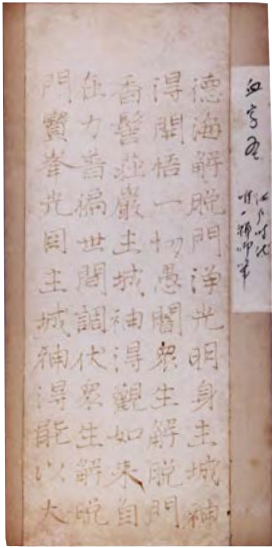 血字
江戸時代
唯一禅師筆
德海解脱門淨光明身主城神
得開悟一切愚闇衆生解脱門
香髻莊嚴主城神得觀如來自
在力普徧世間調伏衆生解脱
門寶峯光目主城神得能以大